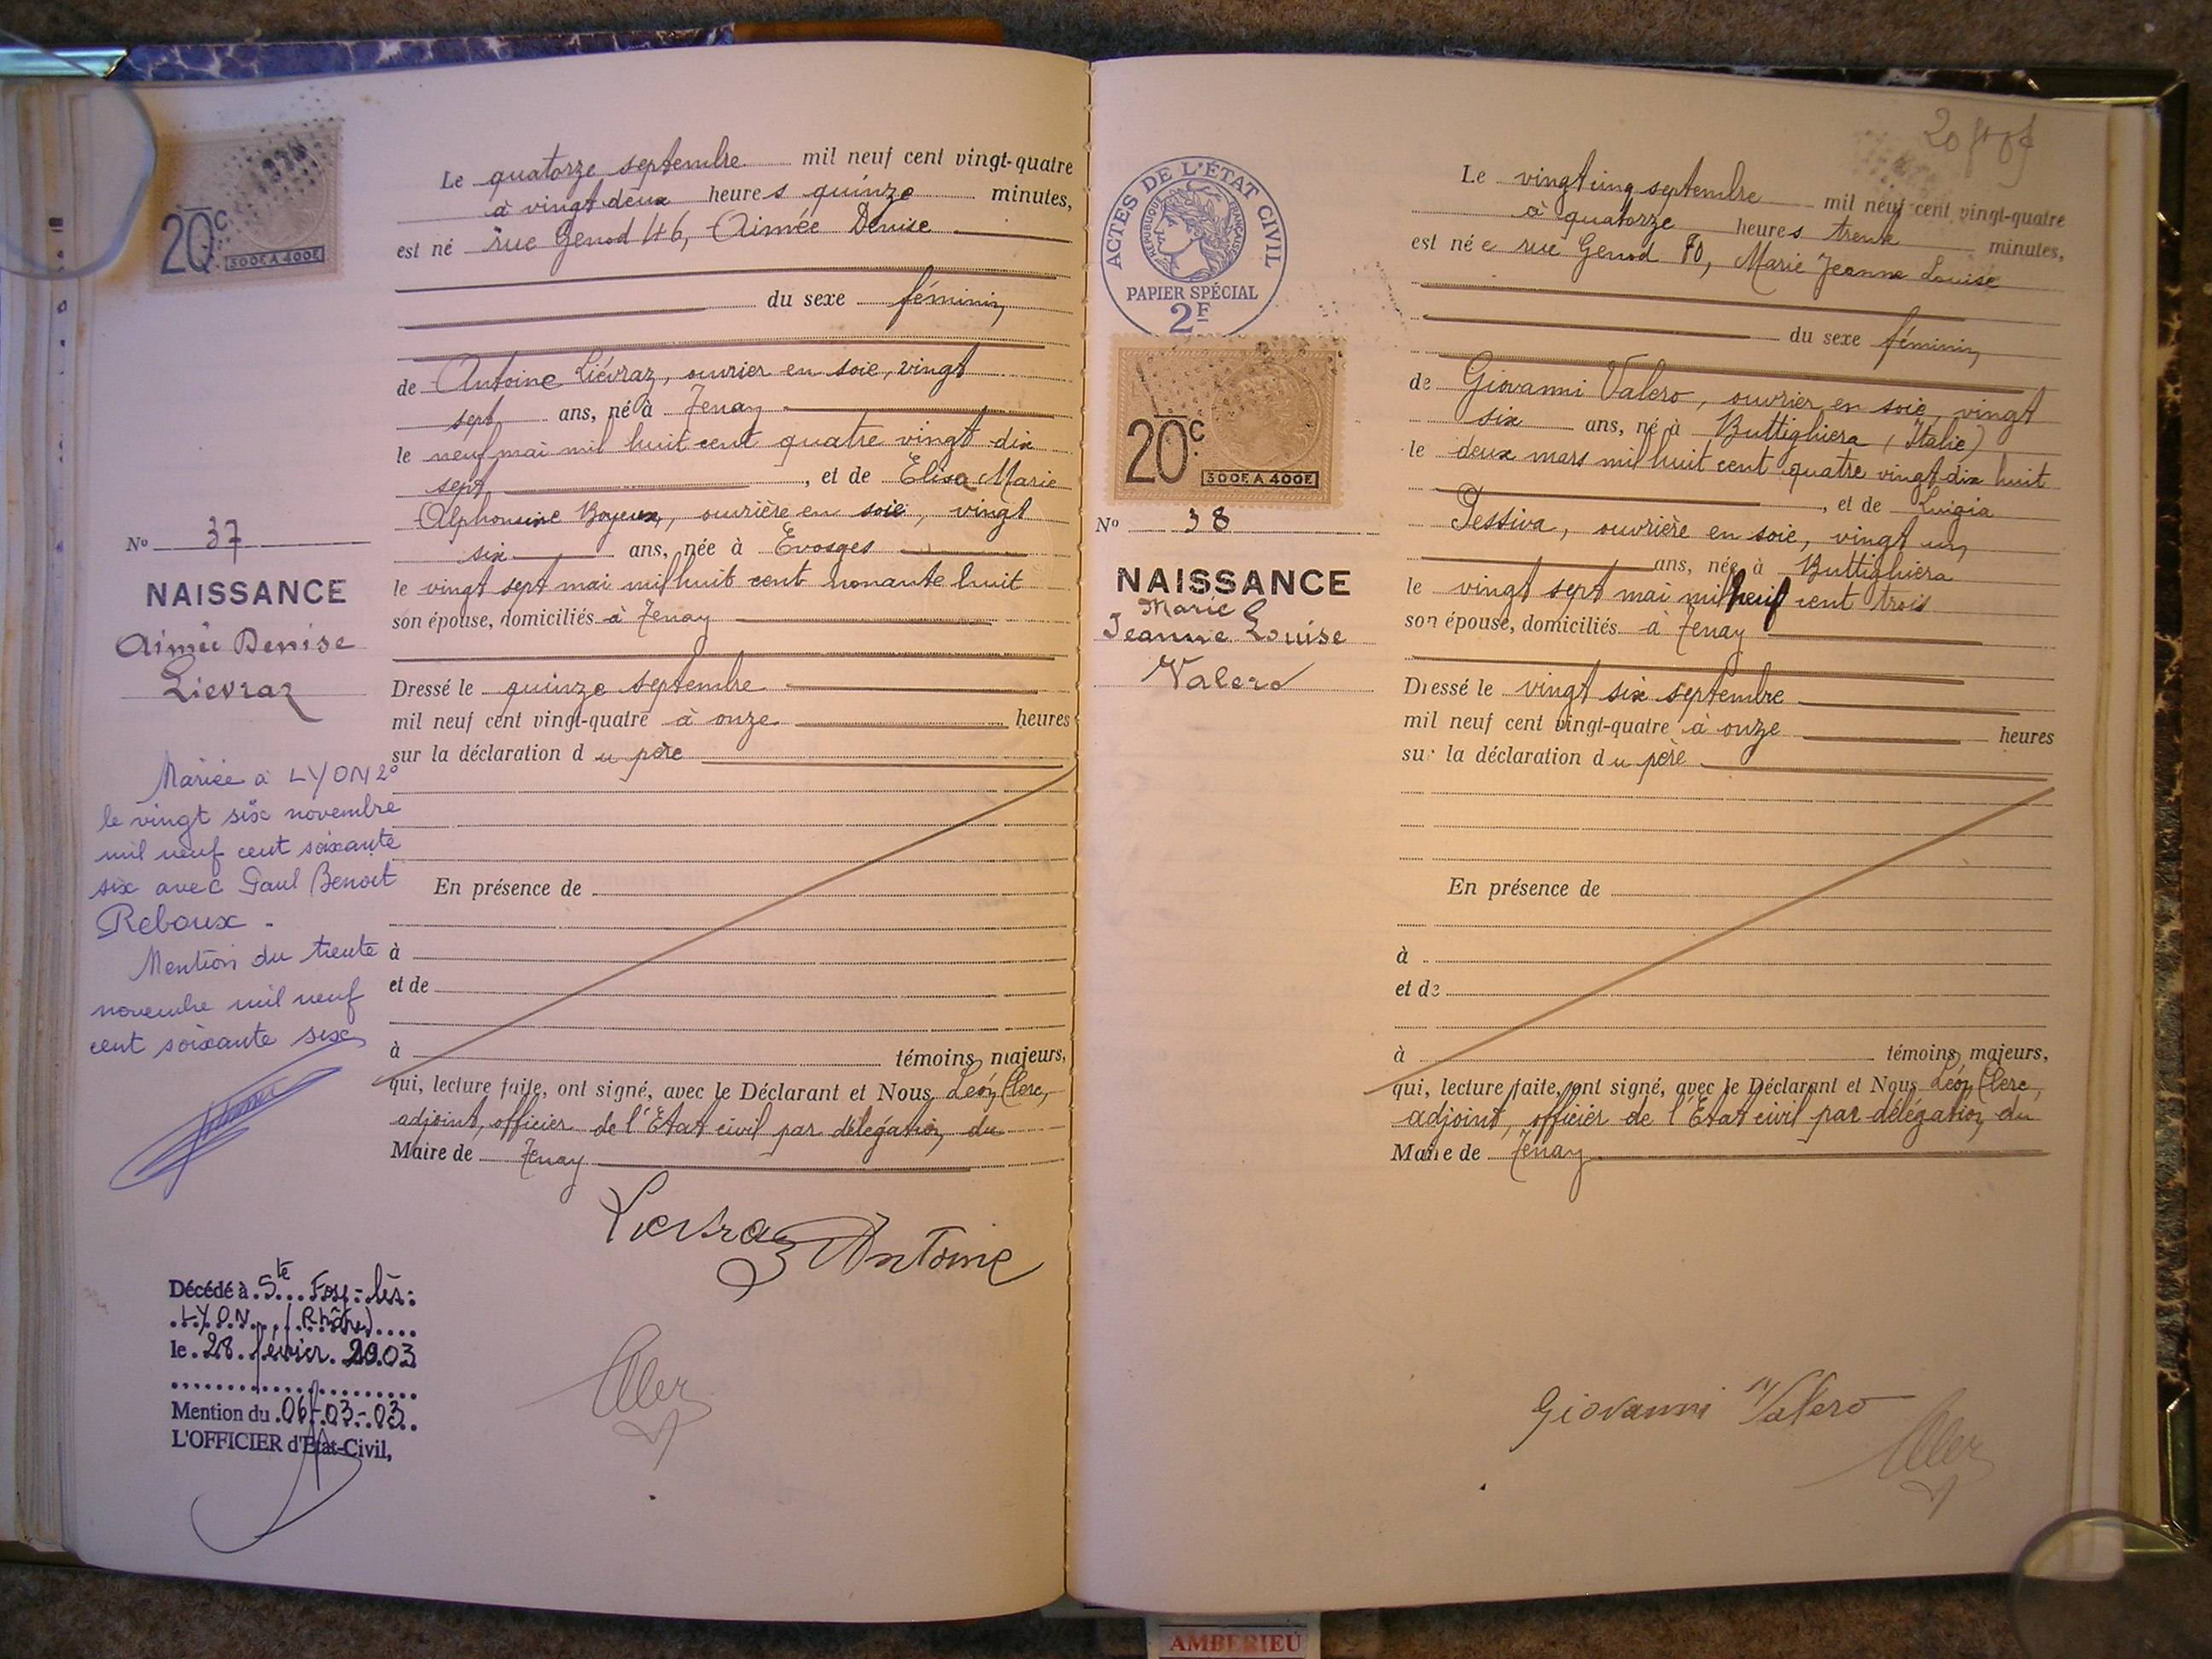 20c
300F A 400F
Le quatorze septembre mil neuf cent vingt-quatre
à vingt deux heures quinze minutes,
est né rue Genod 46, Aimée Denise
du sexe féminin
de Antoine Liévraz, ouvrier en soie, vingt
sept ans, né à Tenay
le neuf mai mil huit cent quatre vingt dix
sept, et de Elisa Marie
Alphonsine Boyeux, ouvrière en soie, vingt
six ans, née à Evosges
le vingt sept mai mil huit cent nonante huit
son épouse, domiciliés à Tenay
Dressé le quinze septembre
mil neuf cent vingt-quatre à onze heures
sur la déclaration du père
En présence de
à
et de
à témoins majeurs,
qui, lecture faite, ont signé, avec le Déclarant et Nous Léon Clerc,
adjoint, officier de l'État civil par délégation du
Maire de Tenay
Lievraz Antoine
No 37
NAISSANCE
Aimée Denise
Lievraz
Mariée à LYON 2°
le vingt six novembre
mil neuf cent soixante
six avec Paul Benoit
Reboux -
Mention du trente
novembre mil neuf
cent soixante six
Décédé à Ste Foy-lès-
LYON (Rhône)
le 28 février 2003
Mention du 06-03-03
L'OFFICIER d'Etat-Civil,
ACTES DE L'ÉTAT CIVIL
RÉPUBLIQUE FRANÇAISE
PAPIER SPÉCIAL
2F
20c
300F A 400F
No 38
NAISSANCE
Marie
Jeanne Louise
Valero
Le vingt cinq septembre mil neuf cent vingt-quatre
à quatorze heures trente minutes,
est née rue Genod 70, Marie Jeanne Louise
du sexe féminin
de Giovanni Valero, ouvrier en soie, vingt
six ans, né à Buttighiera (Italie)
le deux mars mil huit cent quatre vingt dix huit
, et de Luigia
Pessiva, ouvrière en soie, vingt un
ans, née à Buttighiera
le vingt sept mai mil neuf cent trois
son épouse, domiciliés à Tenay
Dressé le vingt six septembre
mil neuf cent vingt-quatre à onze heures
sur la déclaration du père
En présence de
à
et de
à témoins majeurs,
qui, lecture faite, ont signé, avec le Déclarant et Nous Léon Clerc,
adjoint, officier de l'État civil par délégation du
Maire de Tenay
Giovanni Valero
AMBERIEU